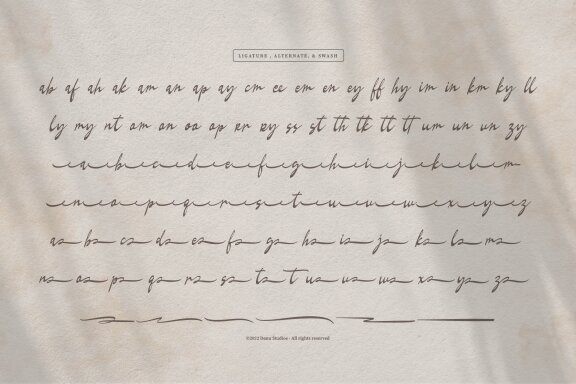 LIGATURE , ALTERNATE, & SWASH
ab af ah ak am an ap ay cm ee em en ey ff hy im in km ky ll
ly my nt om on oo op rr ry ss st th tk tt tt um un vn zy
a b c d e f g h i j k l m
n o p q r s t u v w x y z
a b c d e f g h i j k l m
n o p q r s t u v w x y z
©2022 Dama Studios - All rights reserved